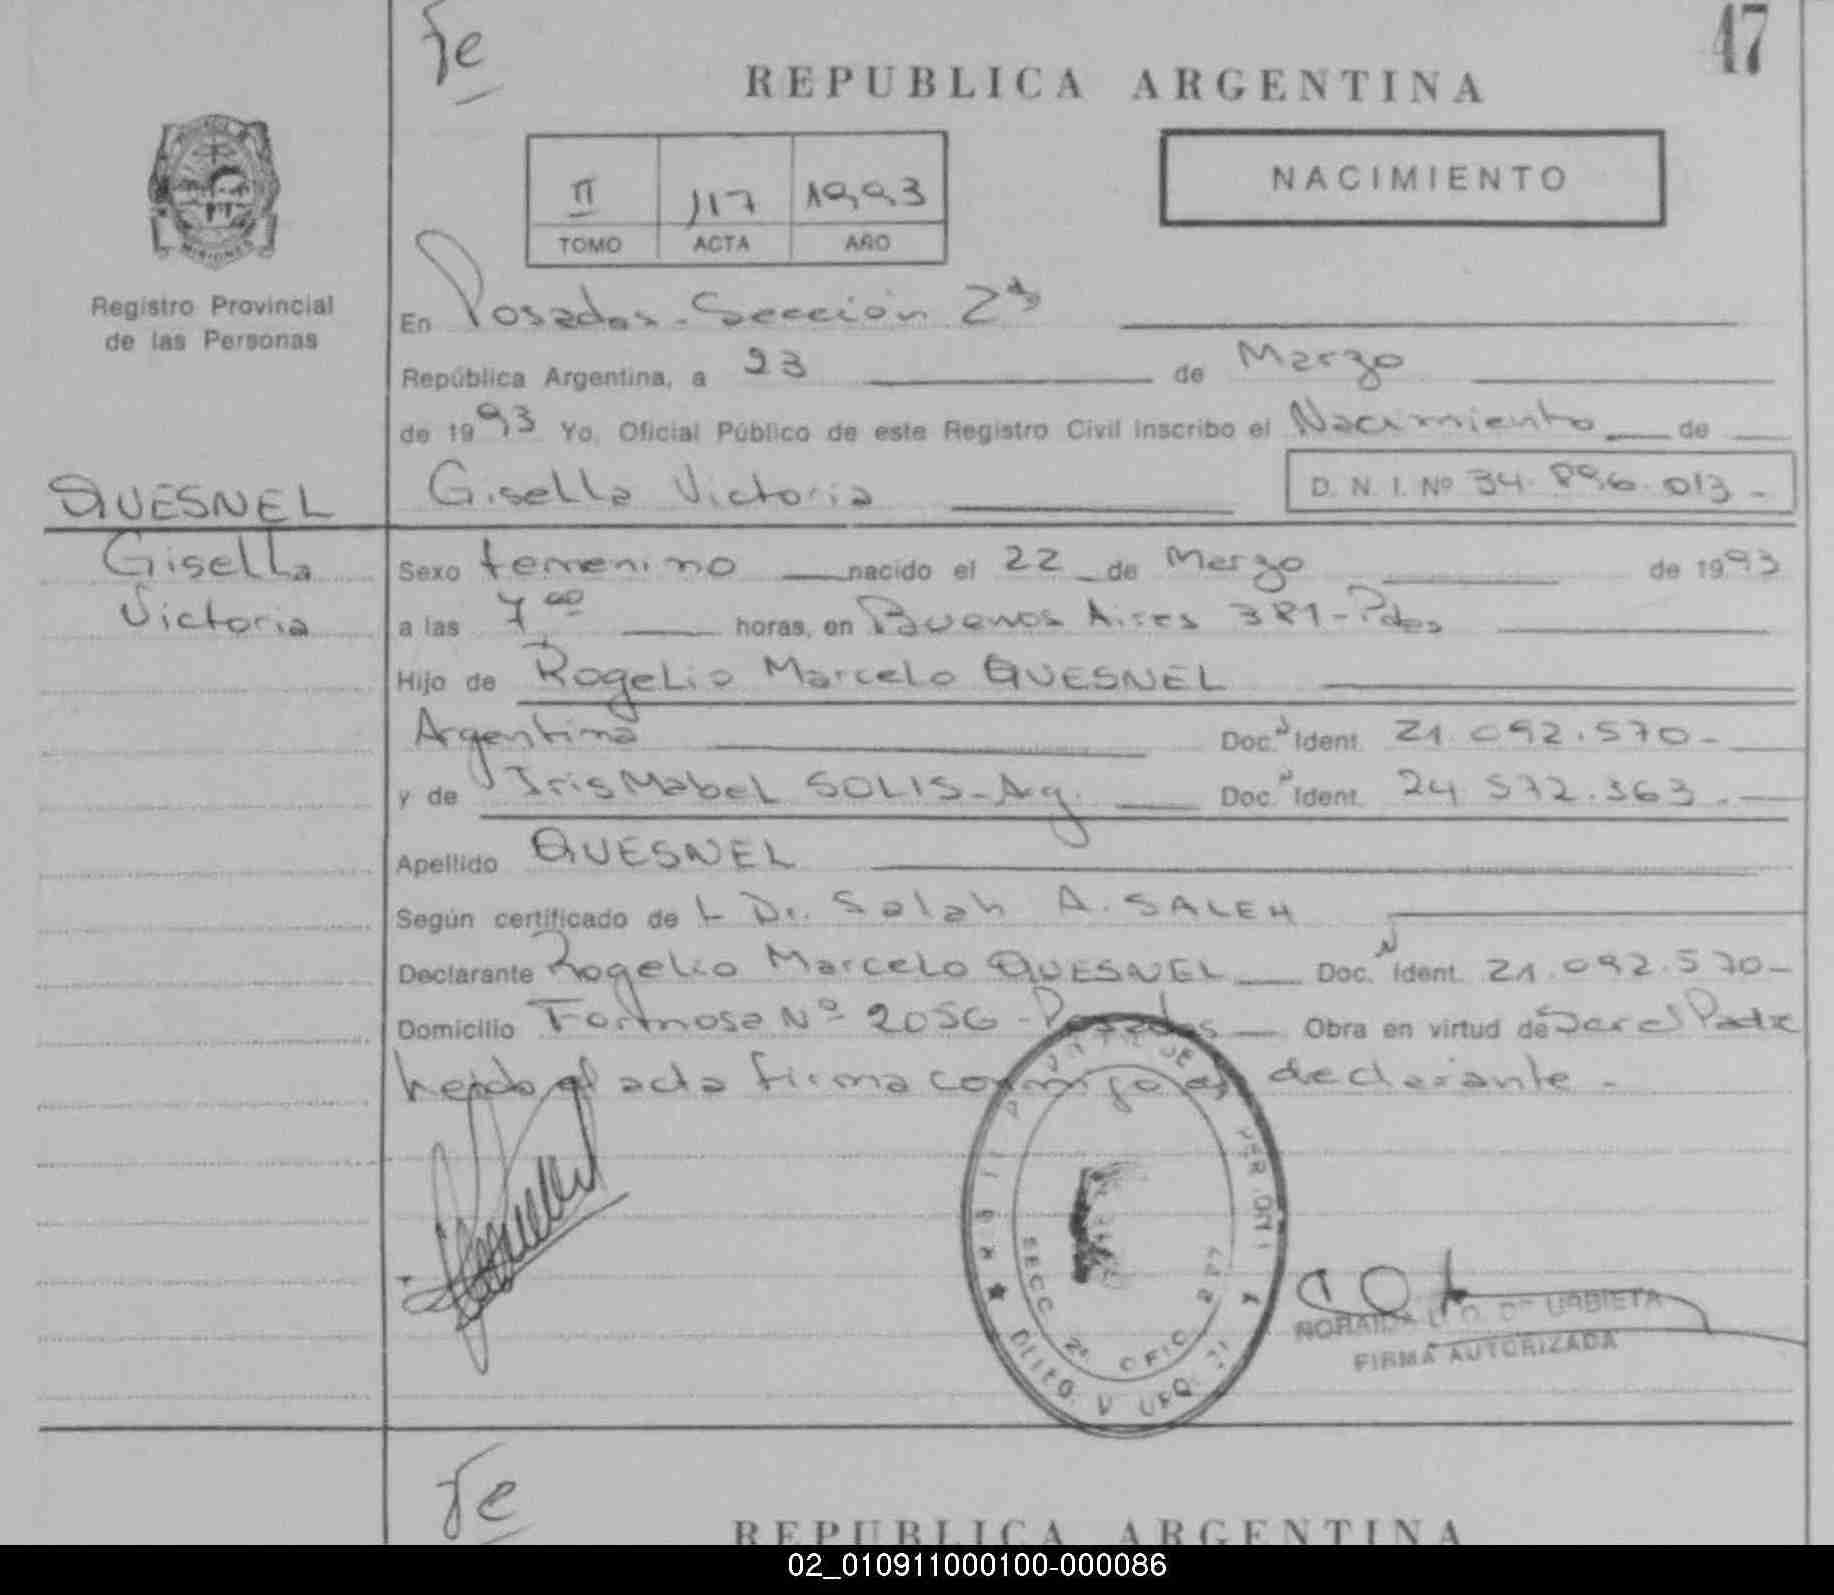 Fe
47
REPUBLICA ARGENTINA
II 117 1993
TOMO ACTA AÑO
NACIMIENTO
MISIONES
Registro Provincial
de las Personas
En Posadas - Sección 2ª
República Argentina, a 23 de Marzo
de 1993 Yo, Oficial Público de este Registro Civil Inscribo el Nacimiento de
QUESNEL
Gisella Victoria
D. N. I. Nº 34.896.013.-
Gisella
Victoria
Sexo femenino nacido el 22 de Marzo de 1993
a las 7 00 horas, en Buenos Aires 381 - Pdas
Hijo de Rogelio Marcelo QUESNEL
Argentina Doc. Ident. 21.092.570.-
y de Iris Mabel SOLIS - Arg. Doc. Ident. 24.572.363.-
Apellido QUESNEL
Según certificado de L Dr. Salah A. SALEH
Declarante Rogelio Marcelo QUESNEL Doc. Ident. 21.092.570-
Domicilio Formosa Nº 2056 - Posadas Obra en virtud de Ser el Padre
heido el acta firma conmigo el declarante.-
SECC 2ª OFIC
URBIETA
FIRMA AUTORIZADA
Fe
REPUBLICA ARGENTINA
02_010911000100-000086